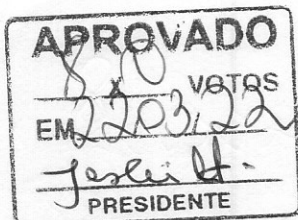 APROVADO
8 x 0 VOTOS
EM 22 03, 22
PRESIDENTE